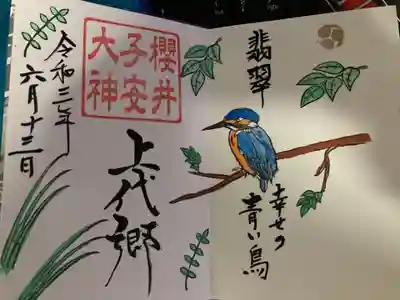 翡翠
幸せの
青い鳥
櫻井
子安
大神
上代郷
令和三年
六月十三日